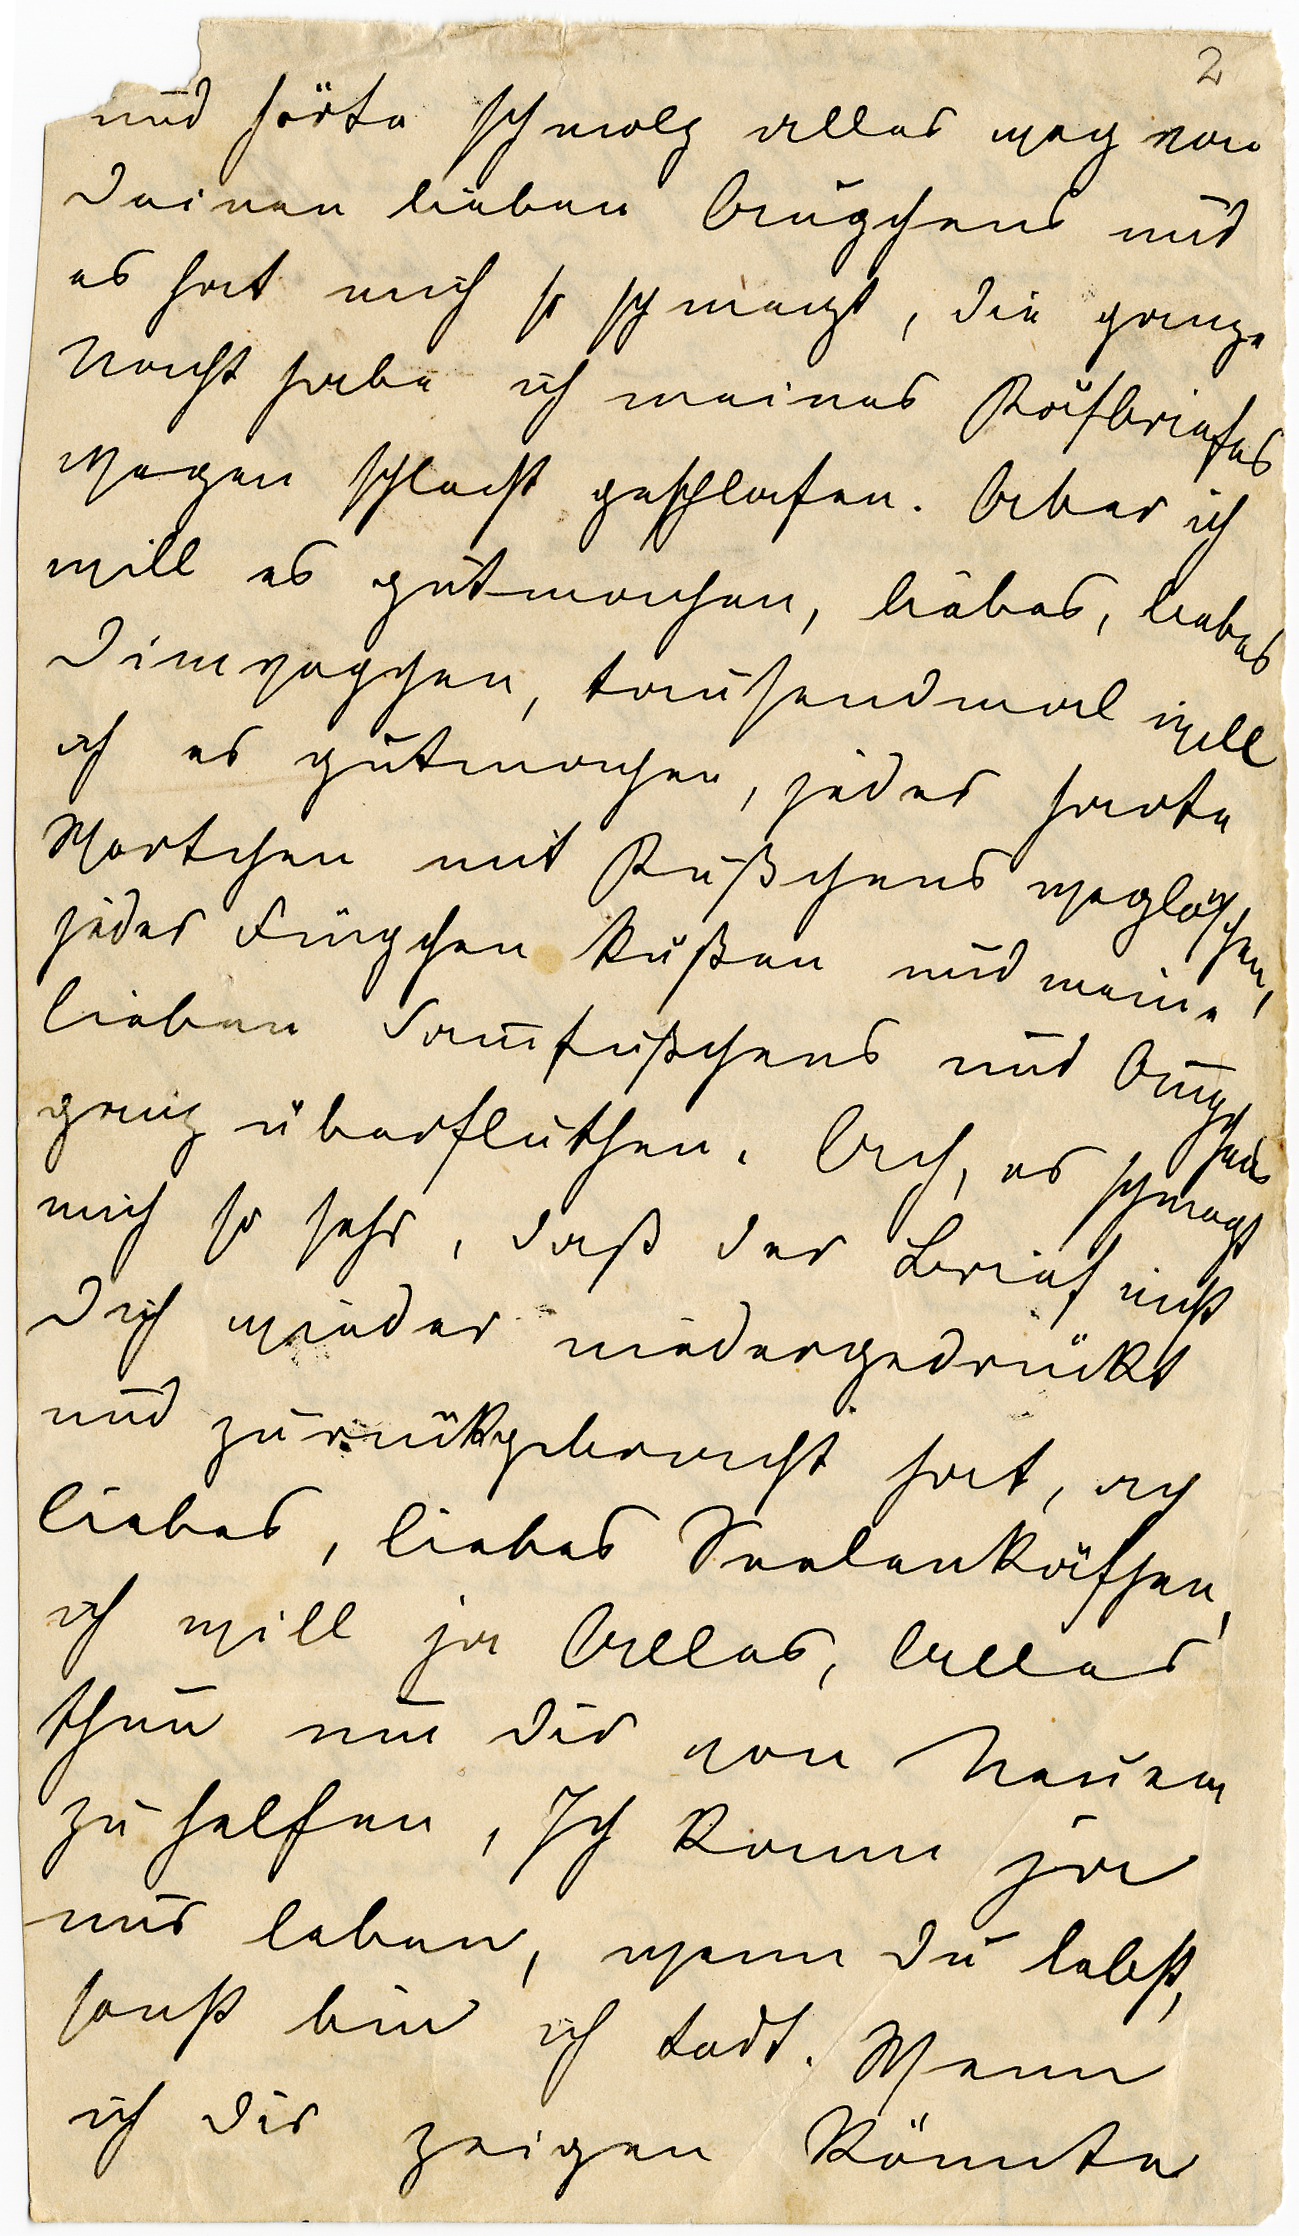 2
und Härte schmolz alles weg von
Deinen lieben Augchens und
es hat mich so schmerzt, die ganze
Nacht habe ich meines
wegen schlecht geschlafen. Aber ich
will es gutmachen, liebes, liebes
tausendmal will
ich es gutmachen, jedes harte
Wortchen mit Kußchens weglöschen,
jedes Augchen küßen und meine
lieben Samtfußchens und Augchens
ganz überfluthen. Ach, es schmerzt
mich so sehr, daß der Brief nicht
Dich wieder niedergedrückt
und zurückgebracht hat, ach
liebes, liebes
ich will ja Alles, Alles
thun um Dir von Neuem
zu helfen, Ich kann ja
nur leben, wenn Du lebst,
sonst bin ich todt. Wenn
ich Dir zeigen könnte